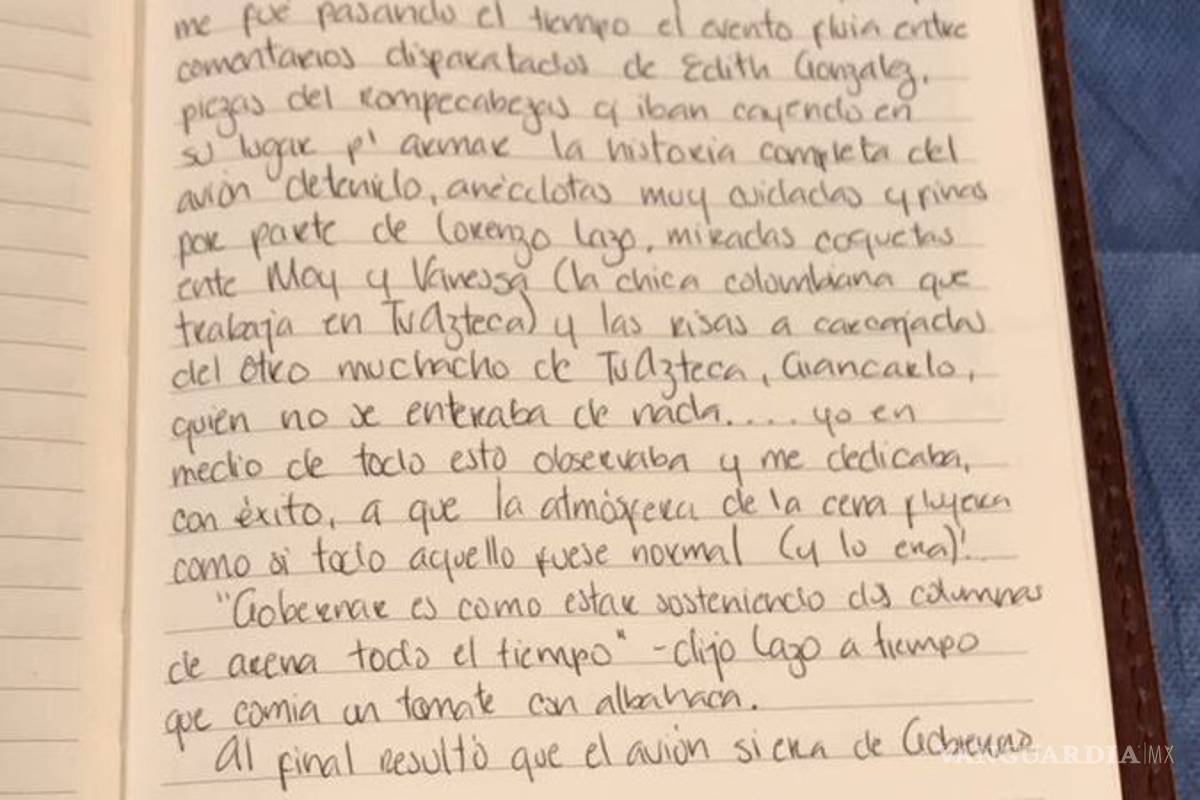 me fue pasando el tiempo el evento fluía entre
comentarios disparatados de Edith González,
piezas del rompecabezas q iban cayendo en
su lugar p' armar la historia completa del
avión detenido, anécdotas muy cuidadas y finas
por parte de Lorenzo Lazo, miradas coquetas
ente Moy y Vanessa (la chica colombiana que
trabaja en TvAzteca) y las risas a carcajadas
del otro muchacho de TvAzteca, Giancarlo,
quién no se enteraba de nada.... yo en
medio de todo esto observaba y me dedicaba,
con éxito, a que la atmósfera de la cena fluyera
como si todo aquello fuese normal (y lo era)!
"Gobernar es como estar sosteniendo dos columnas
de arena todo el tiempo" - dijo Lazo a tiempo
que comía un tomate con albahaca.
Al final resultó que el avión si era de Gobierno
VANGUARDIA|MX